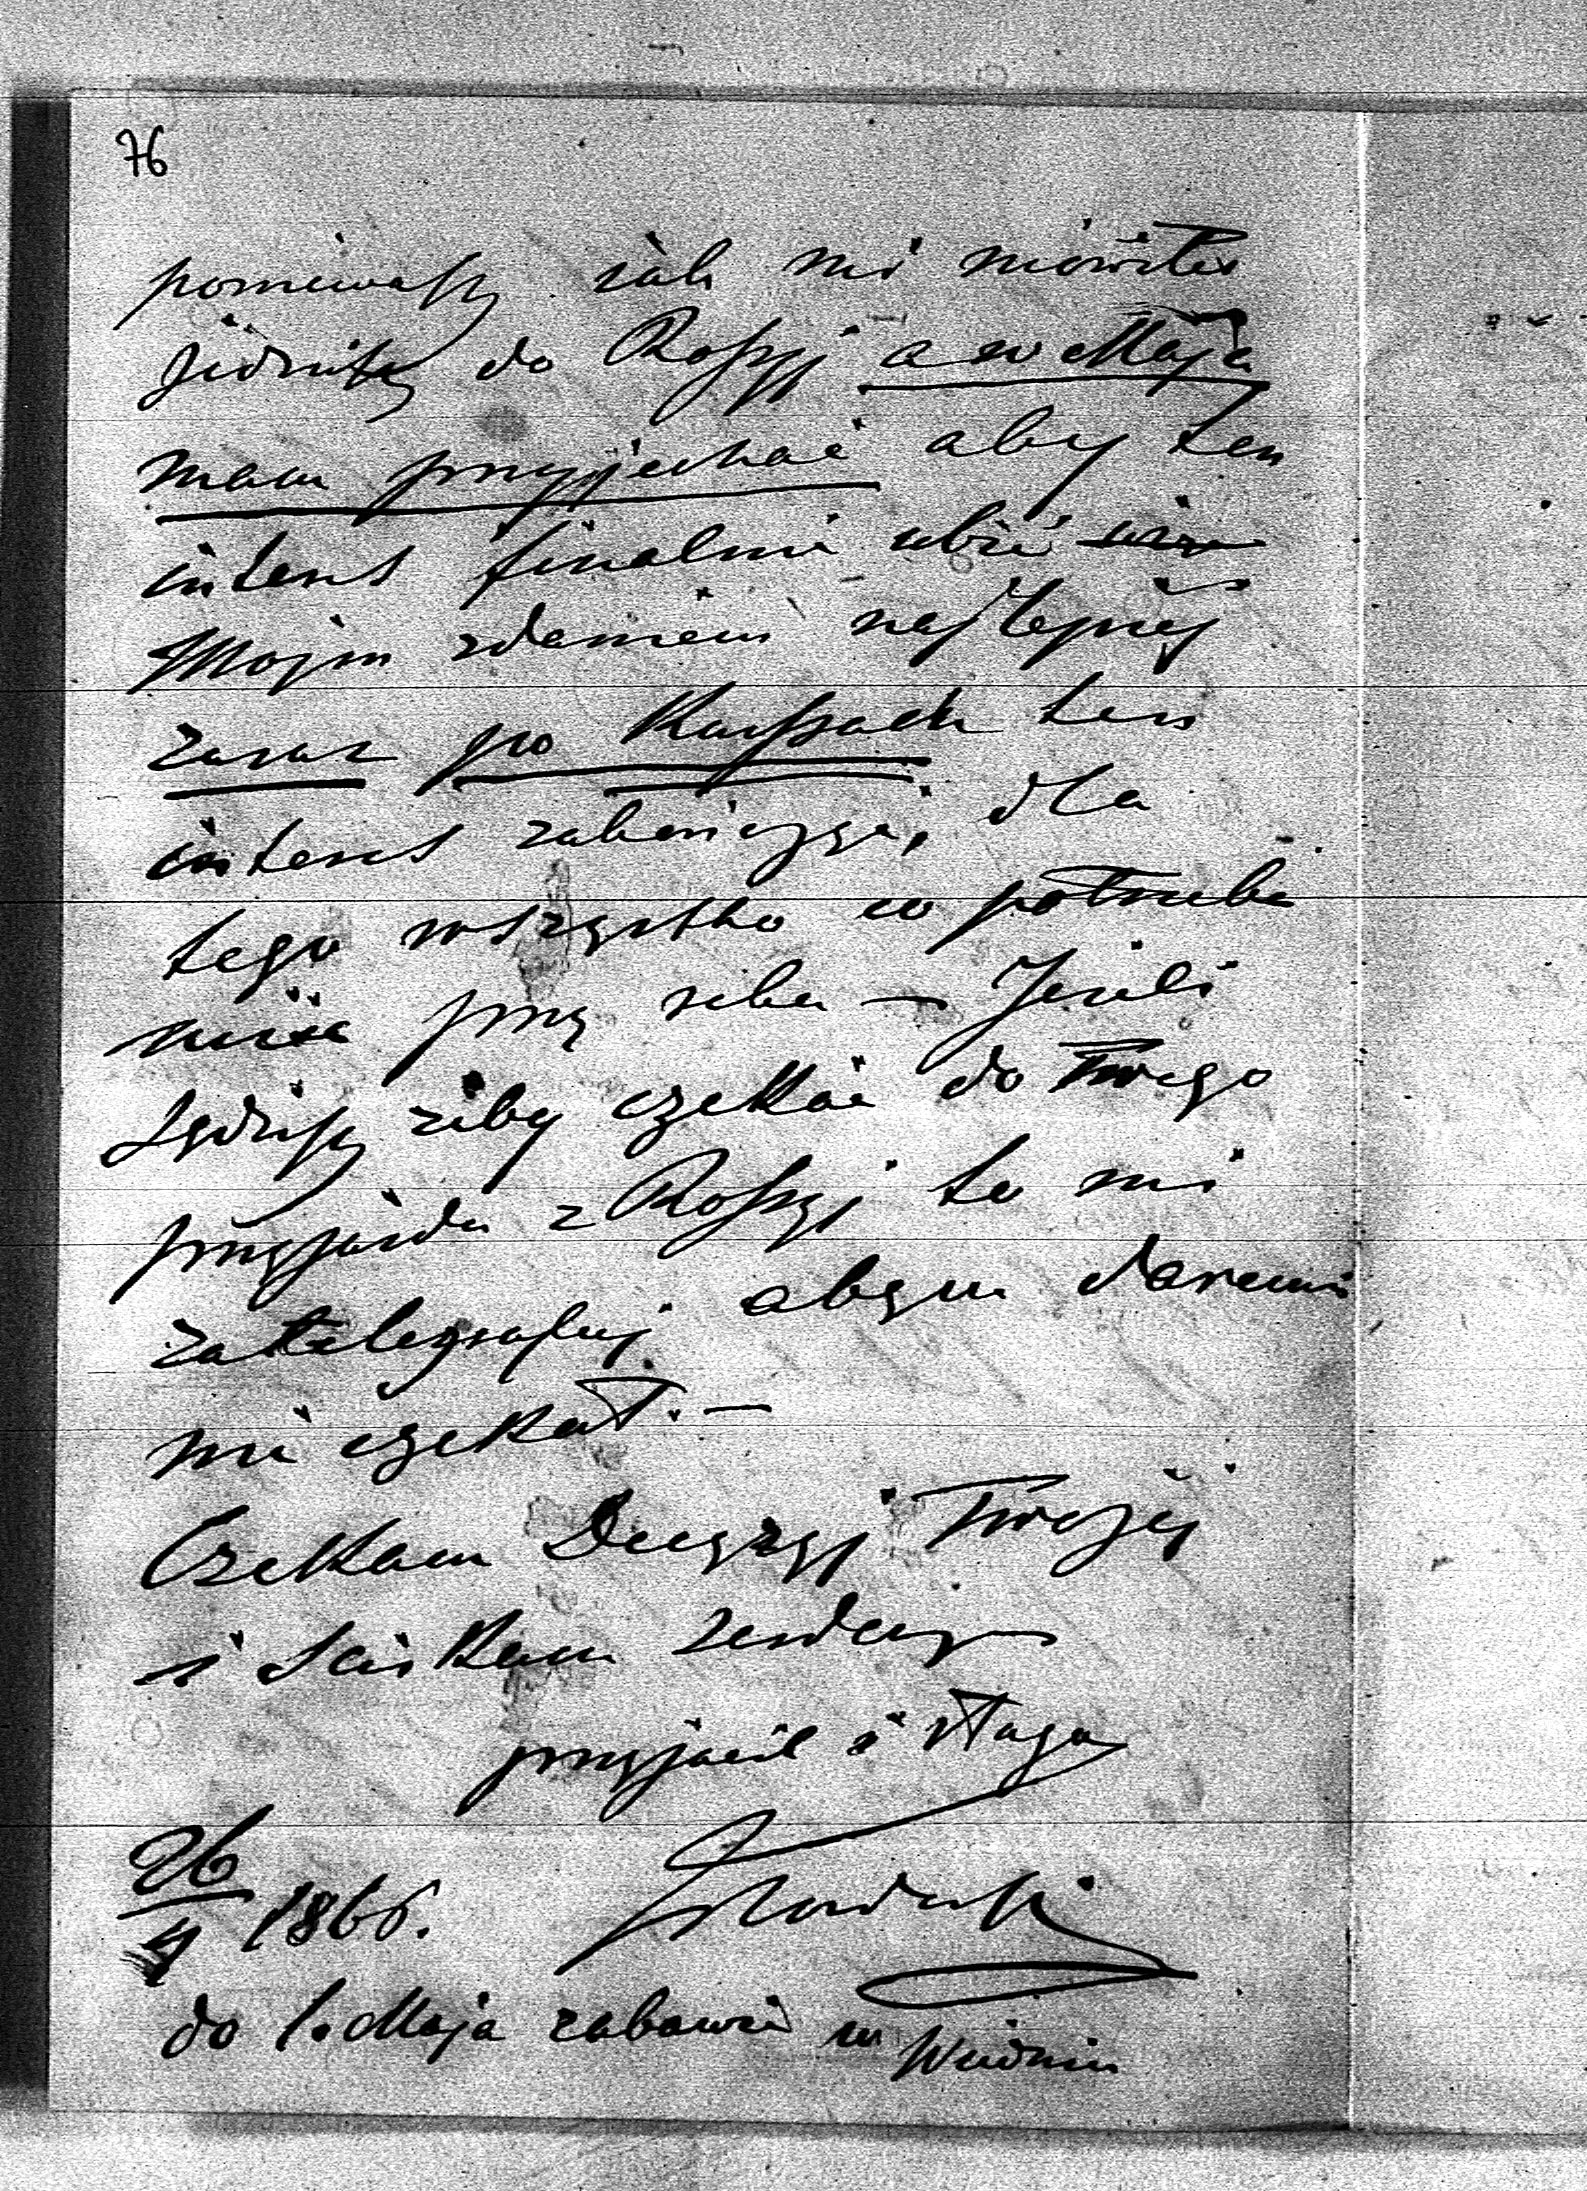 76
ponieważ jak mi mówiłeś
jedziesz do Rossyj a w Maja
mam przyjechać aby ten
interes finalnie ubić
Mojm zdaniem najlepiej
zaraz po
interes zakończyć, dla
tego wszystko co potrzeba
przy sobie — Jeżeli
sądzisz żeby czekać do Twego
przyjazdu z Rossyj to mi
zatelegrafuj abym daremnie
nie czekał. —
Czekam Decyzyj Twojej
i ściskam serdecznie
przyjaciel i sługa
26/4 1866.
do 1. Maja zabawię w Wiedniu